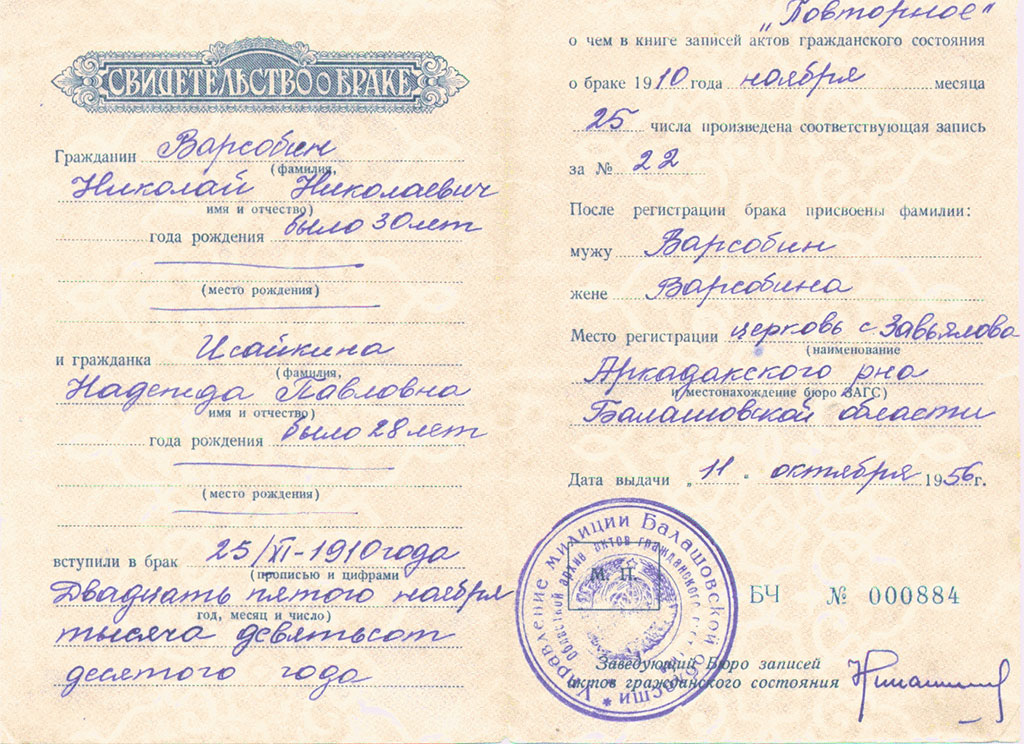 СВИДЕТЕЛЬСТВО О БРАКЕ
Гражданин Варсобин
(фамилия,
Николай Николаевич
имя и отчество)
года рождения было 30 лет
(место рождения)
и гражданка Исайкина
(фамилия,
Надежда Павловна
имя и отчество)
года рождения было 28 лет
(место рождения)
вступили в брак 25/XI-1910 года
(прописью и цифрами
Двадцать пятого ноября
год, месяц и число)
тысяча девятьсот
десятого года
"Повторное"
о чем в книге записей актов гражданского состояния
о браке 1910 года ноября месяца
25 числа произведена соответствующая запись
за № 22
После регистрации брака присвоены фамилии:
мужу Варсобин
жене Варсобина
Место регистрации церковь с Завьялова
(наименование
Аркадакского рна
и местонахождение бюро ЗАГС)
Балашовской области
Дата выдачи „11" октября 1956 г.
Управление милиции Балашовской области
Областной архив актов гражданского
М. П.
БЧ № 000884
Заведующий Бюро записей
актов гражданского состояния